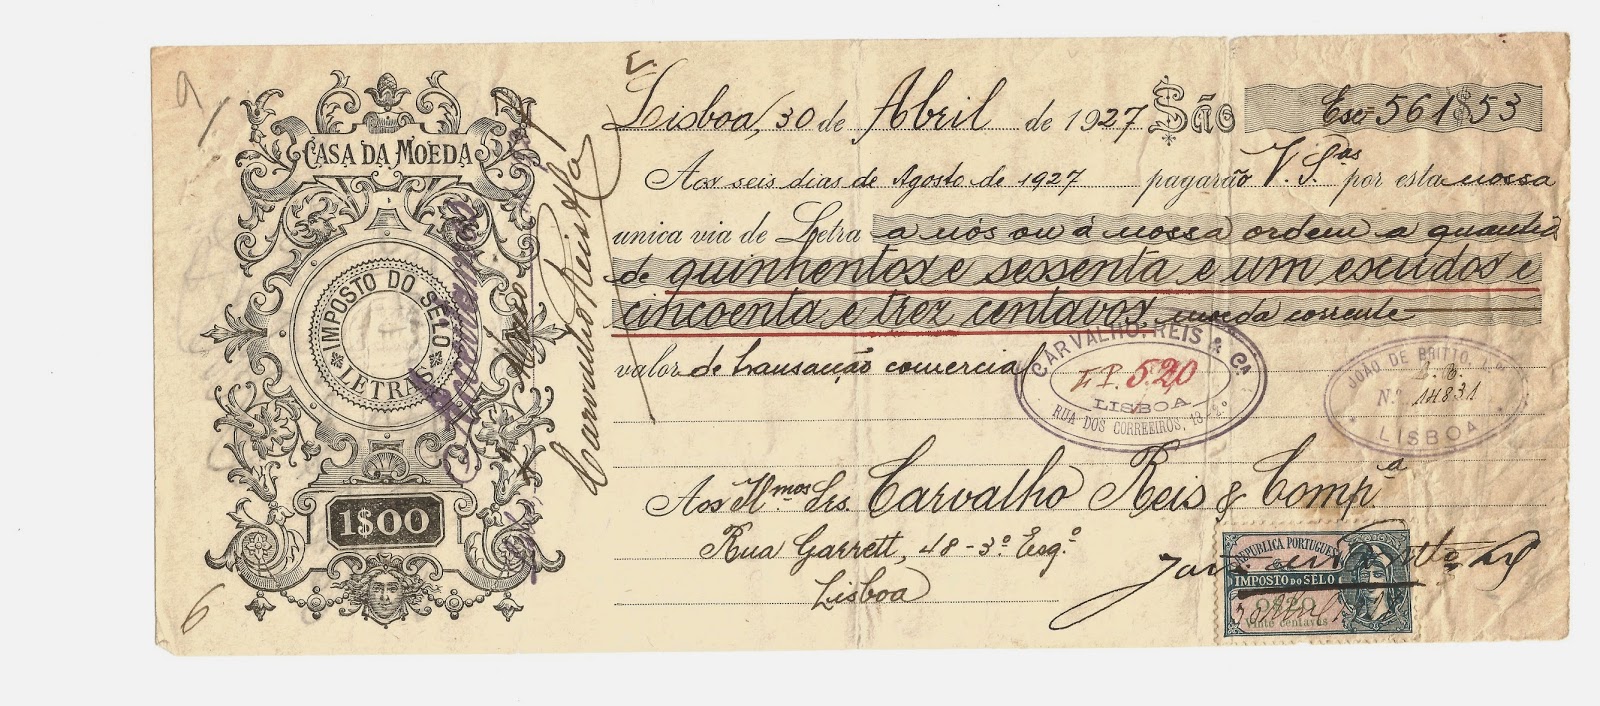 9
6
CASA DA MOEDA
IMPOSTO DO SELO
LETRAS
1$00
Carvalho Reis & Ca
Lisboa, 30 de Abril de 1927 São Esc. 561$53
Aos seis dias de Agosto de 1927 pagarão V. S.as por esta nossa
unica via de Letra a nós ou á nossa ordem a quantia
de quinhentos e sessenta e um escudos e
cincoenta e trez centavos, moeda corrente
valor de transacção comercial
CARVALHO, REIS & CA
5.20
LISBOA
RUA DOS CORREEIROS, 13
JOÃO DE BRITTO, L.DA
N.º 14831
LISBOA
Aos Il.mos Srs. Carvalho Reis & Comp.a
Rua Garrett, 48 - 3.º Esq.º
Lisboa
REPUBLICA PORTUGUESA
IMPOSTO DO SELO
Vinte centavos